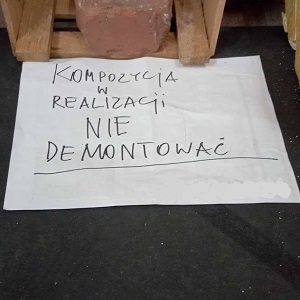 KOMPOZYCJA
W
REALIZACJI
NIE
DEMONTOWAĆ